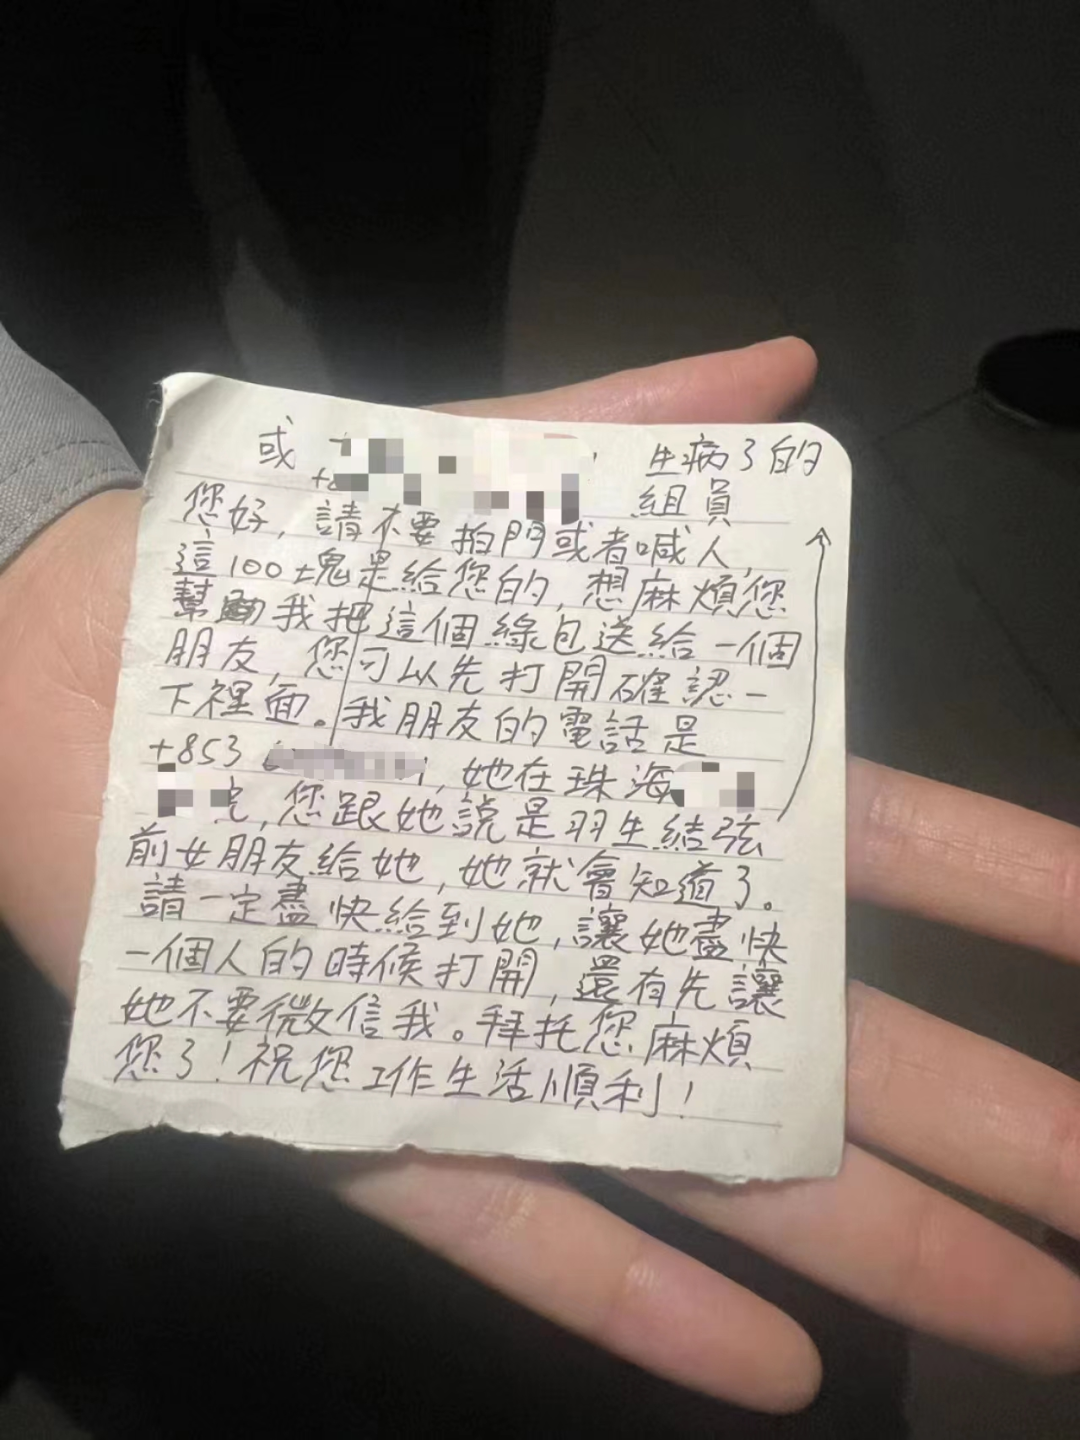 或
+
生病了的
組員
您好，請不要拍門或者喊人，
這100塊是給您的，想麻煩您
幫我把這個綠包送給一個
朋友，您可以先打開確認一
下裡面。我朋友的電話是
+853 ，她在珠海
，您跟她說是羽生結弦
前女朋友給她，她就會知道了。
請一定盡快給到她，讓她盡快
一個人的時候打開，還有先讓
她不要微信我。拜托您麻煩
您了！祝您工作生活順利！